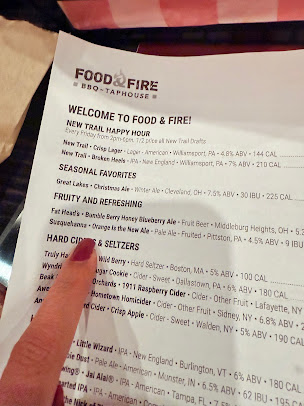 FOOD & FIRE
BBQ - TAPHOUSE
WELCOME TO FOOD & FIRE!
NEW TRAIL HAPPY HOUR
Every Friday from 3pm-6pm, 1/2 price all New Trail Drafts
New Trail • Crisp Lager • Lager - American • Williamsport, PA • 4.8% ABV • 144 CAL
New Trail • Broken Heels • IPA • New England • Williamsport, PA • 7% ABV • 210 CAL
SEASONAL FAVORITES
Great Lakes • Christmas Ale • Winter Ale • Cleveland, OH • 7.5% ABV • 30 IBU • 225 CAL
FRUITY AND REFRESHING
Fat Head's • Bumble Berry Honey Blueberry Ale • Fruit Beer • Middleburg Heights, OH • 5.3
Susquehanna • Orange Is the New Ale • Pale Ale - Fruited • Pittston, PA • 4.5% ABV • 9 IBU
HARD & SELTZERS
Truly Wild Berry • Hard Seltzer • Boston, MA • 5% ABV • 100 CAL
Sugar Cookie • Cider - Sweet • Dallastown, PA • 6% ABV • 180 CAL
Beak Orchards • 1911 Raspberry Cider • Cider - Other Fruit • Lafayette, NY
Hometown Homicider • Cider - Other Fruit • Sidney, NY • 6.8%
Cider • Crisp Apple • Cider - Sweet • Walden, NY • 5% ABV • 190
Little Wizard • IPA - New England • Burlington, VT • 6% ABV • 180 CAL
Dust • Pale Ale - American • Munster, IN • 6.5% ABV • 62 IBU • 195
Jai Alai® • IPA - American • Tampa, FL • 7.5%
IPA •